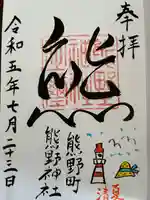 奉拝
熊
熊野町
熊野神社
令和五年七月二十三日
清夏